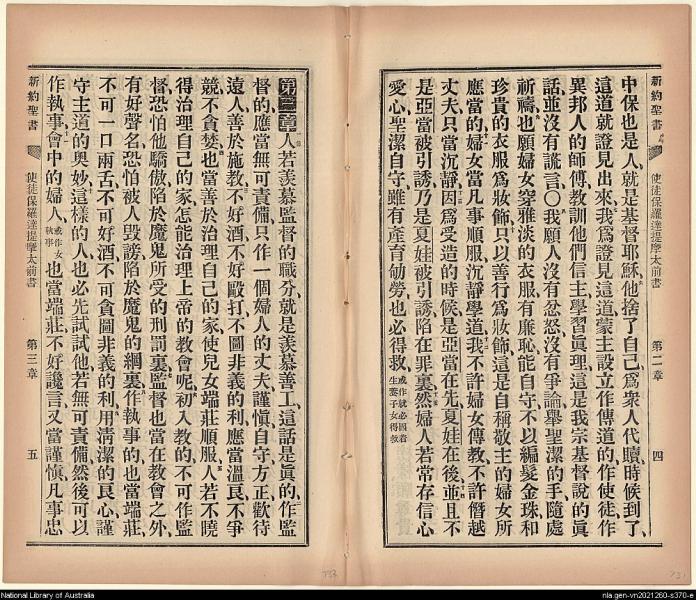 新約聖書
使徒保羅達提摩太前書
第二章
四
中保也是人、就是基督耶穌、他捨了自己、爲衆人代贖、時候到了、
這道就證見出來、我爲證見這道、蒙主設立作傳道的、作使徒、作
異邦人的師傅、教訓他們信主、學習眞理、這是我宗基督說的眞
話、並沒有謊言、〇我願人沒有忿怒、沒有爭論、舉聖潔的手、隨處
祈禱、也願婦女穿雅淡的衣服、有廉恥、能自守、不以編髮金珠和
珍貴的衣服爲妝飾、只以善行爲妝飾、這是自稱敬主的婦女所
應當的、婦女當凡事順服、沉靜學道、我不許婦女傳教、不許僭越
丈夫、只當沉靜、因爲受造的時候、是亞當在先、夏娃在後、並且不
是亞當被引誘、乃是夏娃被引誘、陷在罪裏、然婦人若常存信心
愛心、聖潔自守、雖有產育劬勞、也必得救、或作就必因着生養子女得救
第三章 人若羨慕監督的職分、就是羨慕善工、這話是眞的、作監
督的、應當無可責備、只作一個婦人的丈夫、謹愼、自守、方正、歡待
遠人、善於施教、不好酒、不好毆打、不圖非義的利、應當溫良、不爭
競、不貪婪、也當善於治理自己的家、使兒女端莊順服、人若不曉
得治理自己的家、怎能治理上帝的教會呢、初入教的不可作監
督、恐怕他驕傲、陷於魔鬼所受的刑罰裏、監督也當在教會之外、
有好聲名、恐怕被人毀謗、陷於魔鬼的網裏、作執事的也當端莊、
不可一口兩舌、不可好酒、不可貪圖非義的利、用清潔的良心、謹
守主道的奧妙、這樣的人、也必先試試他、若無可責備、然後可以
作執事、會中的婦人、或作女執事也當端莊、不好讒言、又當謹愼、凡事忠
新約聖書
使徒保羅達提摩太前書
第三章
五
National Library of Australia
nla.gen-vn2021260-s370-e